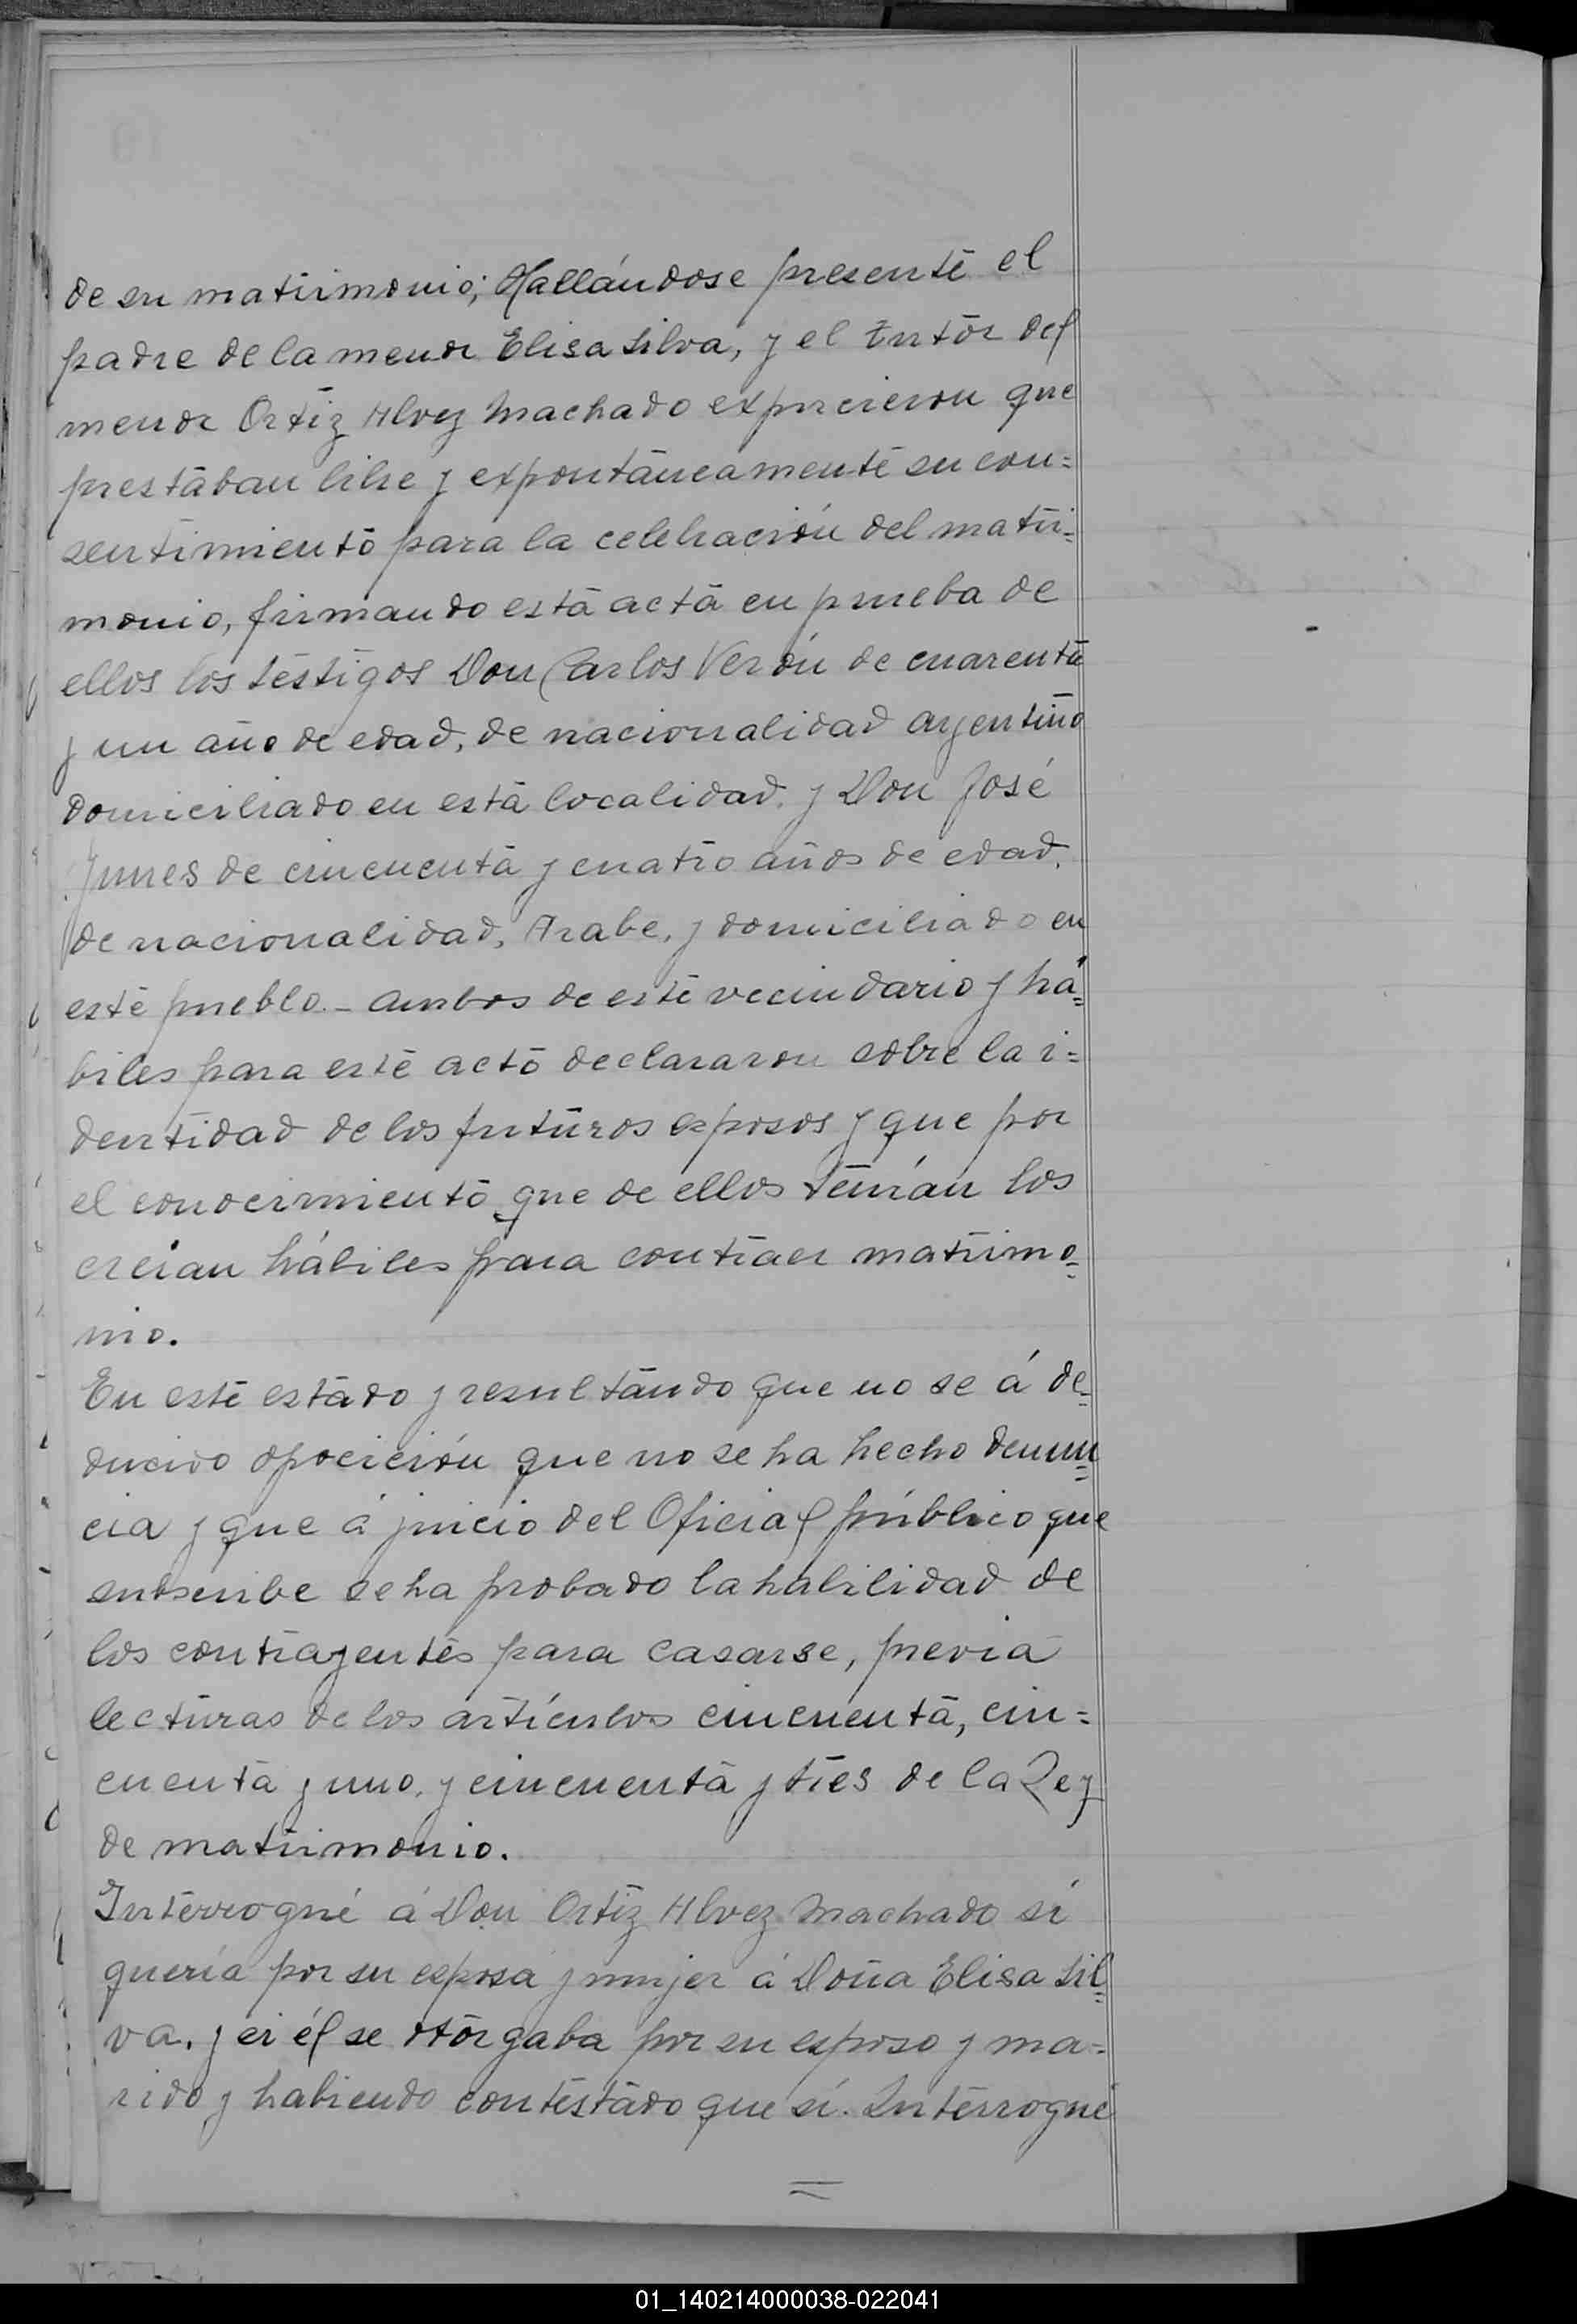 de su matrimonio; Hallándose presente el
padre de la menor Elisa Silva, y el tutor del
menor Ortiz Alvez Machado expucieron que
prestaban libre y expontáneamente su con=
sentimiento para la celebración del matri=
monio, firmando esta acta en prueba de
ellos los testigos Don Carlos Verón de cuarenta
y un año de edad, de nacionalidad argentino
domiciliado en esta localidad. y Don José
Junes de cincuenta y cuatro años de edad.
de nacionalidad, Arabe, y domiciliado en
este pueblo. - ambos de este vecindario y há=
biles para este acto declararon sobre la i=
dentidad de los futuros esposos y que por
el conocimiento que de ellos tenían los
creian hábiles para contraer matrimo=
nio.
En este estado y resultando que no se á de=
ducido opocición que no se ha hecho denun=
cia y que á juicio del Oficial público que
subscribe se ha probado la habilidad de
los contrayentes para casarse, previa
lecturas de los artículos cincuenta, cin=
cuenta y uno. y cincuenta y tres de la Ley
de matrimonio.
Interrogué á Don Ortiz Alvez Machado si
quería por su esposa y mujer á Doña Elisa Sil=
va. y si él se otorgaba por su esposo y ma=
rido y habiendo contestado que sí. Interrogué
01_140214000038-022041